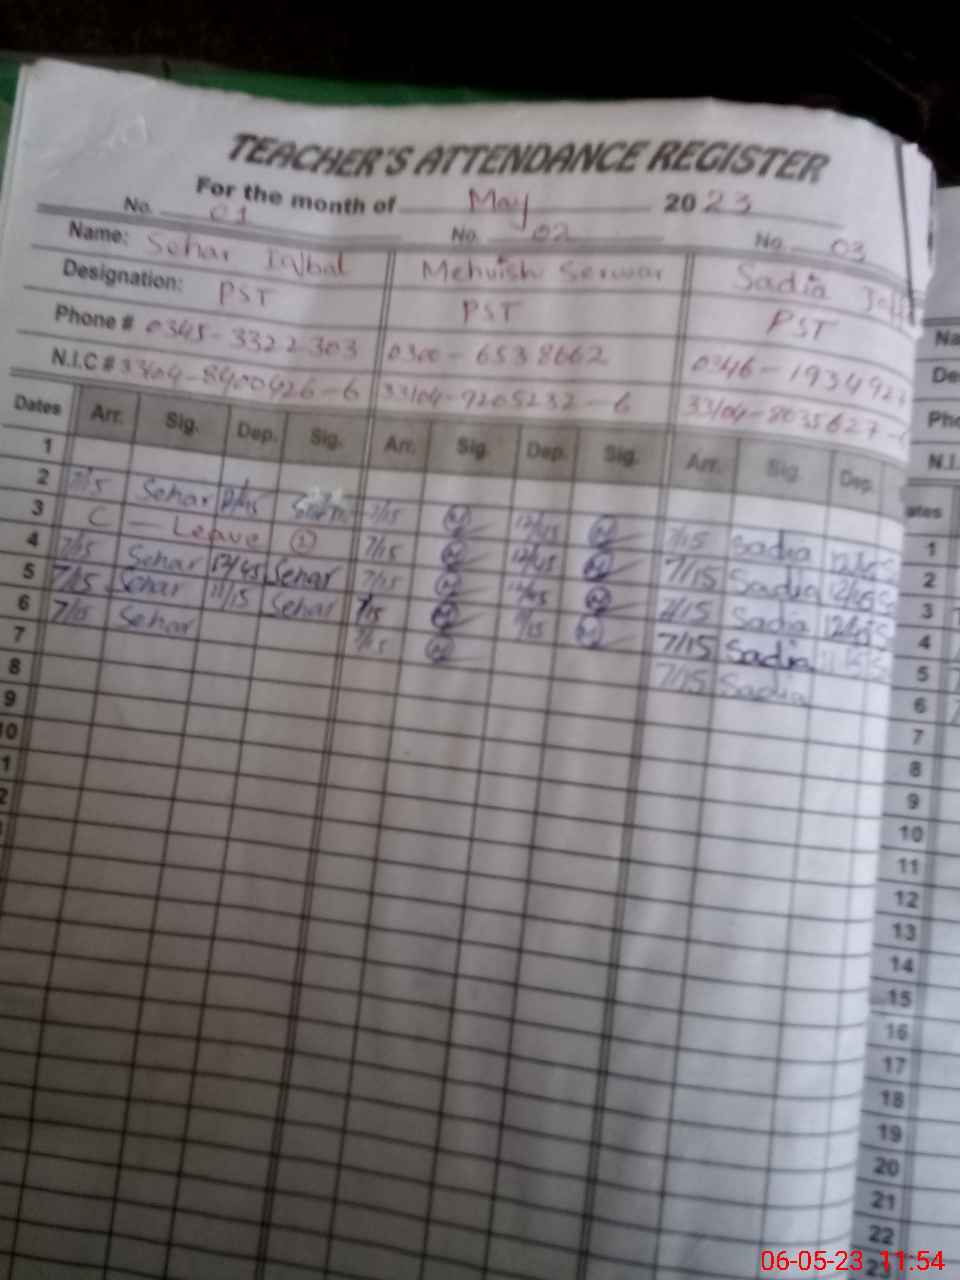 TEACHER'S ATTENDANCE REGISTER
For the month of May 2023
No. 01 No. 02 No. 03
Name: Sehar Iqbal Mehvish Serwar Sadia
Designation: PST PST PST
Phone # 0345-3322303 0300-6538662 0346-193492
N.I.C # 33104-8400926-6 33104-9205232-6 33104-8035627-
Dates Arr. Sig. Dep. Sig. Arr. Sig. Dep. Sig. Arr. Sig. Dep.
1
2 7/15 Sehar 12/45 7/15 12/45 7/15 Sadia 12/45
3 C — Leave ① 7/15 12/45 7/15 Sadia 12/45
4 7/15 Sehar 12/45 Sehar 7/15 12/45 7/15 Sadia 12/45
5 7/15 Sehar 11/15 Sehar 7/15 11/15 7/15 Sadia 11/15
6 7/15 Sehar 7/15 7/15 Sadia
7
8
9
10
Na
De
Pho
N.I.
ates
1
2
3
4
5
6
7
8
9
10
11
12
13
14
15
16
17
18
19
20
21
22
06-05-23 11:54